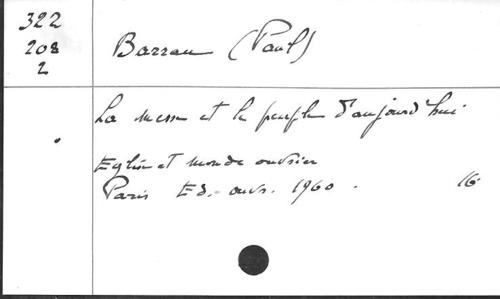 322
208
2
Barrau (Paul)
La messe et le peuple d'aujourd'hui
Eglise et monde ouvrier
Paris Ed. ouvr. 1960. 16